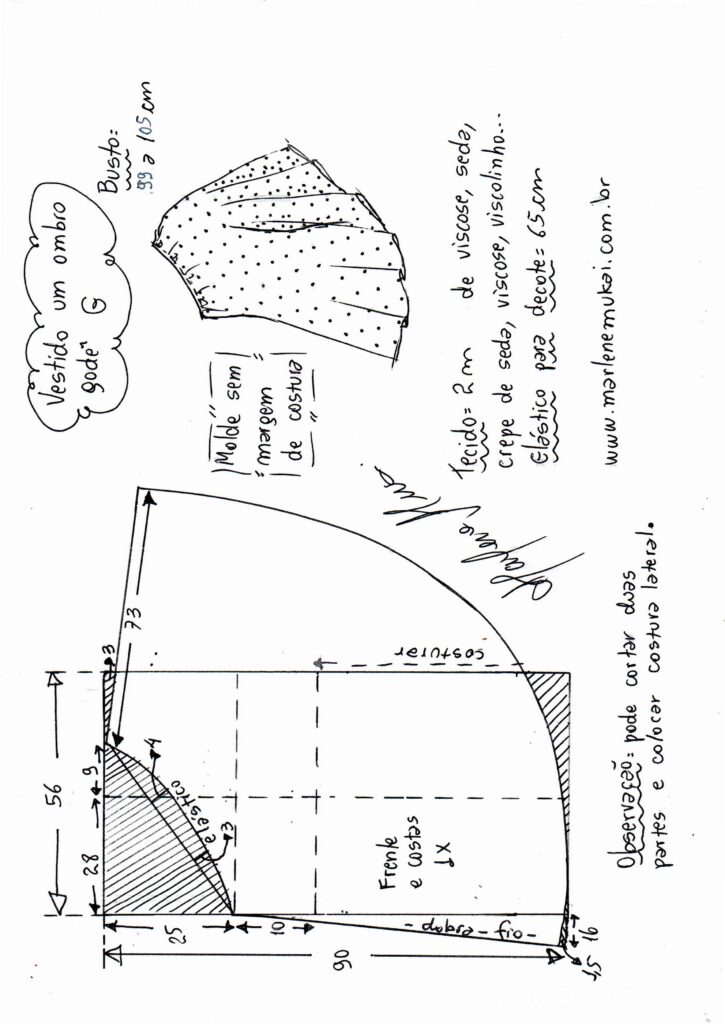 Vestido um ombro
godê" G
Busto=
99 a 105 cm
"Molde sem"
"margem"
de costura
"
Tecido= 2 m de viscose, seda,
crepe de seda, viscose, viscolinho...
Elástico para decote= 65 cm
www.marlenemukai.com.br
56
28
9
3
73
4
elástico
3
25
10
90
costurar
Frente
e costas
1X
- fio - dobra -
16
1,5
Observação= pode cortar duas
partes e colocar costura lateral.